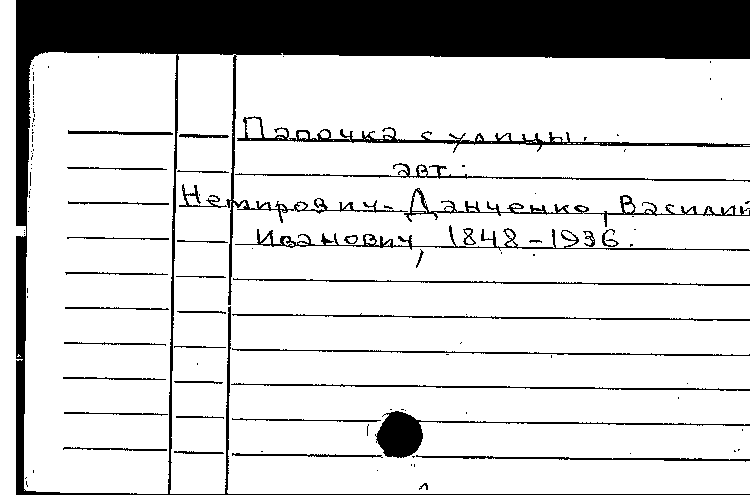 Папочка с улицы.
авт.:
Немирович-Данченко, Василий
Иванович, 1848-1936.